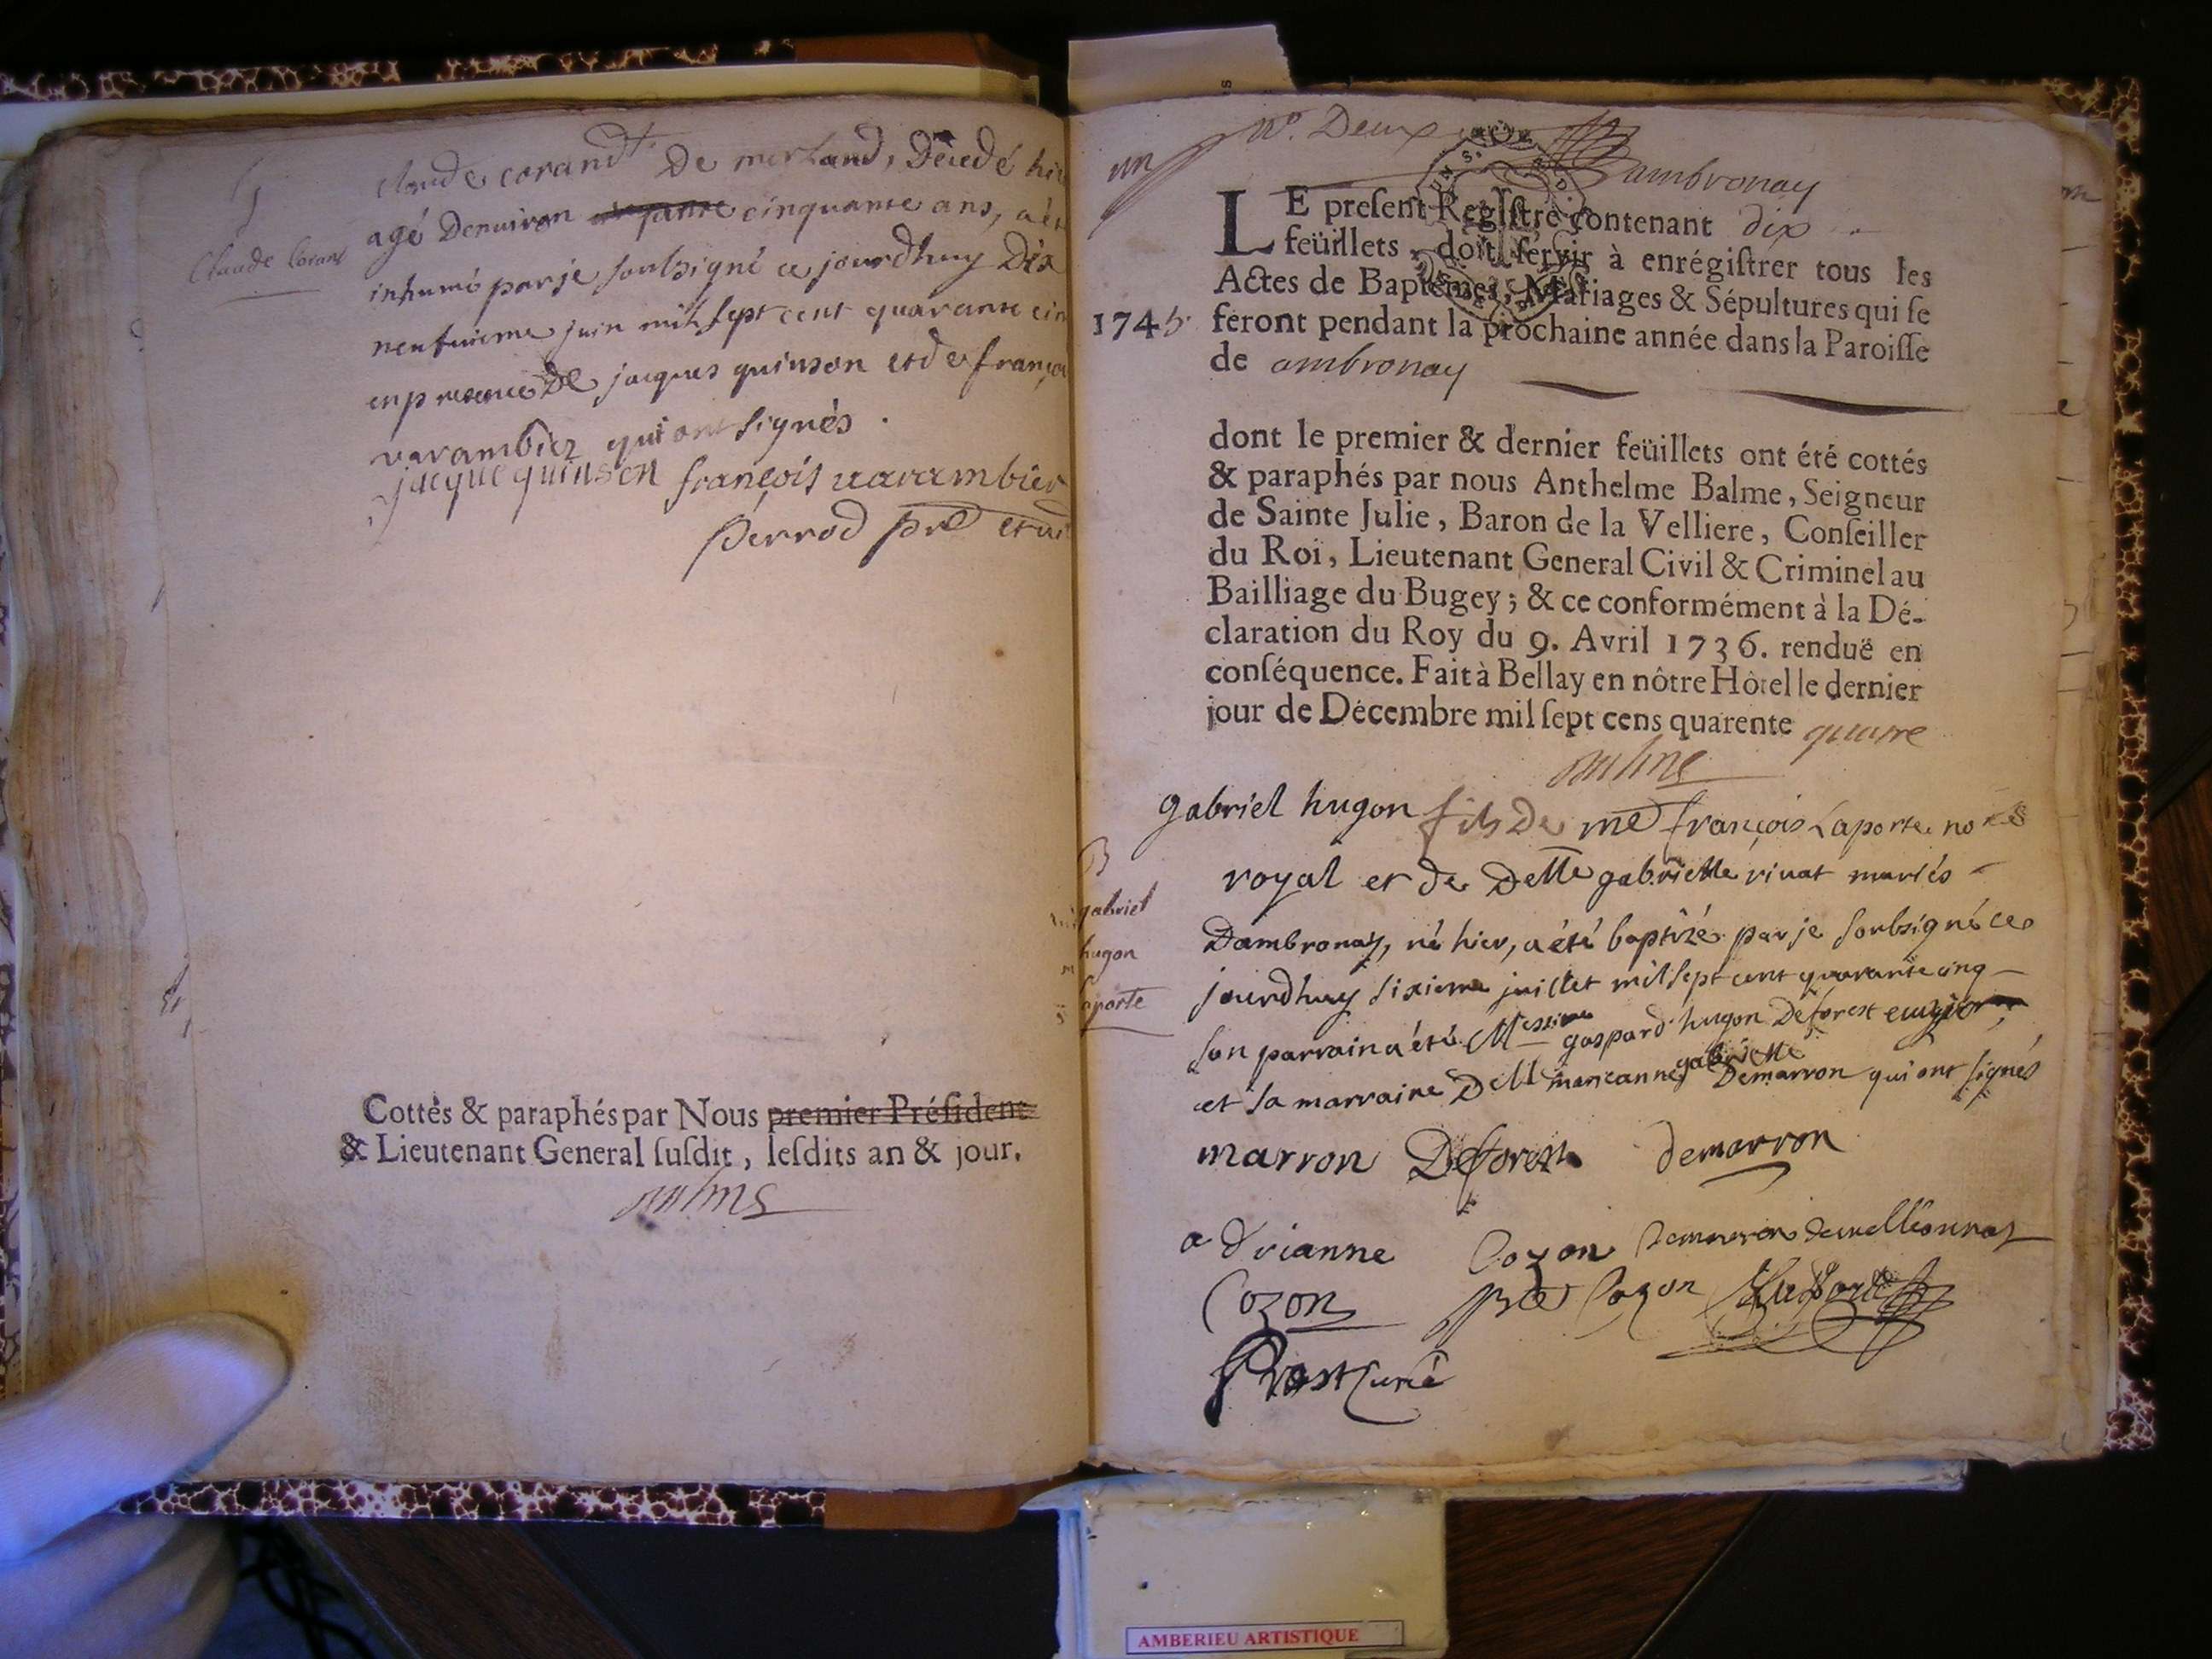 S
Claude Corant
claude corant De merland, Décedé hie
agé Denuiron soixante cinquante ans, a ét
inhumé par je soubsigné ce jourdhuy Dix
neufuieme juin mil sept cent quarante cin
en presence de jacques quinson et de françoi
varambier qui ont signés.
jacque quinson françois uarambier
Perrod pre et ui
Cottés & paraphés par Nous premier Préſident
& Lieutenant General ſuſdit, leſdits an & jour.
Balme
un
No. Deux
ambronay
LE preſent Regiſtre contenant dix
feüillets, doit ſervir à enrégiſtrer tous les
Actes de Baptêmes, Mariages & Sépultures qui ſe
1745 feront pendant la prochaine année dans la Paroiſſe
de ambronay
dont le premier & dernier feüillets ont été cottés
& paraphés par nous Anthelme Balme, Seigneur
de Sainte Julie, Baron de la Velliere, Conſeiller
du Roi, Lieutenant General Civil & Criminel au
Bailliage du Bugey; & ce conformément à la Dé-
claration du Roy du 9. Avril 1736. renduë en
conſéquence. Fait à Bellay en nôtre Hôtel le dernier
jour de Décembre mil ſept cens quarente quatre
Balme
B
gabriel
hugon
laporte
gabriel hugon fils De me françois Laporte no re
royal et de Delle gabrielle rivat mariés
Dambronay, né hier, a été baptizé par je soubsigné ce
jourdhuy sixieme juillet mil sept cent quarante cinq
son parrain a été Messire gaspard hugon Deforest ecuyer,
et sa marraine Delle marieanne gabrielle Demarron qui ont signés
marron Deforest demarron
adrianne Cozon Demarron demellionnas
Cozon pre Cozon Laporte
Prost curé
AMBERIEU ARTISTIQUE